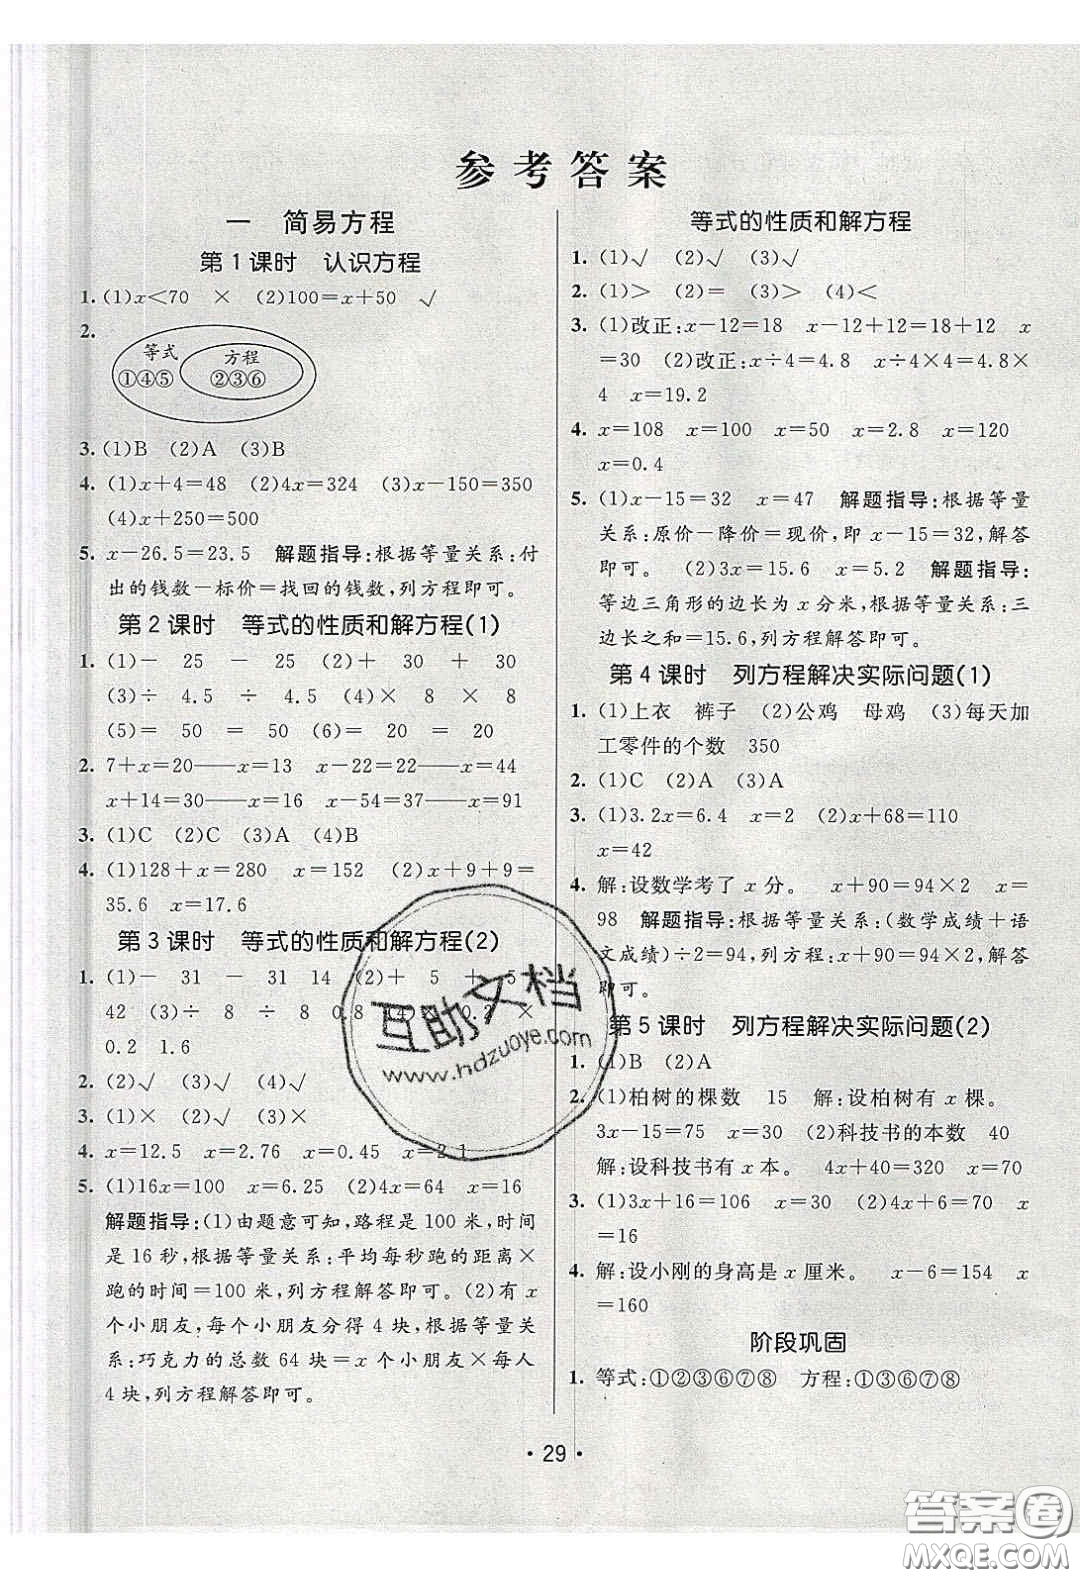 参考答案
一　简易方程
第1课时　认识方程
1. (1)x<70　×　(2)100=x+50　√
2.
等式　方程
①④⑤　②③⑥
3. (1)B　(2)A　(3)B
4. (1)x+4=48　(2)4x=324　(3)x-150=350
(4)x+250=500
5. x-26.5=23.5　解题指导:根据等量关系:付
出的钱数-标价=找回的钱数,列方程即可。
第2课时　等式的性质和解方程(1)
1. (1)-　25　-　25　(2)+　30　+　30
(3)÷　4.5　÷　4.5　(4)×　8　×　8
(5)=　50　=　50　(6)=　20　=　20
2. 7+x=20——x=13　x-22=22——x=44
x+14=30——x=16　x-54=37——x=91
3. (1)C　(2)C　(3)A　(4)B
4. (1)128+x=280　x=152　(2)x+9+9=
35.6　x=17.6
第3课时　等式的性质和解方程(2)
1. (1)-　31　-　31　14　(2)+　5　+　5
42　(3)÷　8　÷　8　0.8　(4)×　0.2　×
0.2　1.6
2. (2)√　(3)√　(4)√
3. (1)×　(2)√　(3)×
4. x=12.5　x=2.76　x=0.45　x=2.1
5. (1)16x=100　x=6.25　(2)4x=64　x=16
解题指导:(1)由题意可知,路程是100米,时间
是16秒,根据等量关系:平均每秒跑的距离×
跑的时间=100米,列方程解答即可。(2)有x
个小朋友,每个小朋友分得4块,根据等量关
系:巧克力的总数64块=x个小朋友×每人
4块,列方程解答即可。
等式的性质和解方程
1. (1)√　(2)√　(3)√
2. (1)>　(2)=　(3)>　(4)<
3. (1)改正:x-12=18　x-12+12=18+12　x
=30　(2)改正:x÷4=4.8　x÷4×4=4.8×
4　x=19.2
4. x=108　x=100　x=50　x=2.8　x=120
x=0.4
5. (1)x-15=32　x=47　解题指导:根据等量
关系:原价-降价=现价,即x-15=32,解答
即可。　(2)3x=15.6　x=5.2　解题指导:
等边三角形的边长为x分米,根据等量关系:三
边长之和=15.6,列方程解答即可。
第4课时　列方程解决实际问题(1)
1. (1)上衣　裤子　(2)公鸡　母鸡　(3)每天加
工零件的个数　350
2. (1)C　(2)A　(3)A
3. (1)3.2x=6.4　x=2　(2)x+68=110
x=42
4. 解:设数学考了x分。　x+90=94×2　x=
98　解题指导:根据等量关系:(数学成绩+语
文成绩)÷2=94,列方程:x+90=94×2,解答
即可。
第5课时　列方程解决实际问题(2)
1. (1)B　(2)A
2. (1)柏树的棵数　15　解:设柏树有x棵。
3x-15=75　x=30　(2)科技书的本数　40
解:设科技书有x本。　4x+40=320　x=70
3. (1)3x+16=106　x=30　(2)4x+6=70　x
=16
4. 解:设小刚的身高是x厘米。　x-6=154　x
=160
阶段巩固
1. 等式:①②③⑥⑦⑧　方程:①③⑥⑦⑧
·29·
互助文档
www.hdzuoye.com
答案圈
MXQE.COM